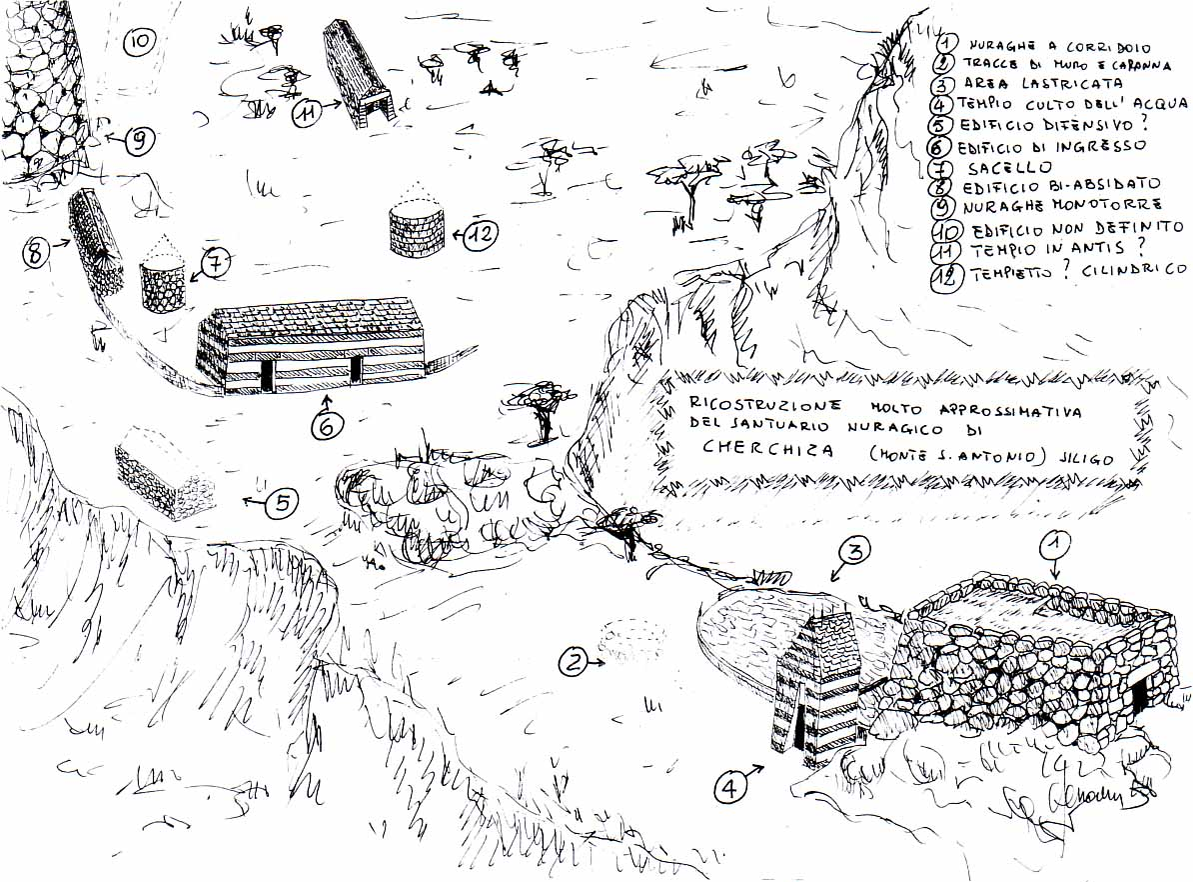 1 NURAGHE A CORRIDOIO
2 TRACCE DI MURO E CAPANNA
3 AREA LASTRICATA
4 TEMPIO CULTO DELL' ACQUA
5 EDIFICIO DIFENSIVO?
6 EDIFICIO DI INGRESSO
7 SACELLO
8 EDIFICIO BI-ABSIDATO
9 NURAGHE MONOTORRE
10 EDIFICIO NON DEFINITO
11 TEMPIO IN ANTIS?
12 TEMPIETTO? CILINDRICO
10
11
9
12
8
7
6
RICOSTRUZIONE MOLTO APPROSSIMATIVA
DEL SANTUARIO NURAGICO DI
CHERCHIZA (MONTE S. ANTONIO) SILIGO
5
3
1
2
4